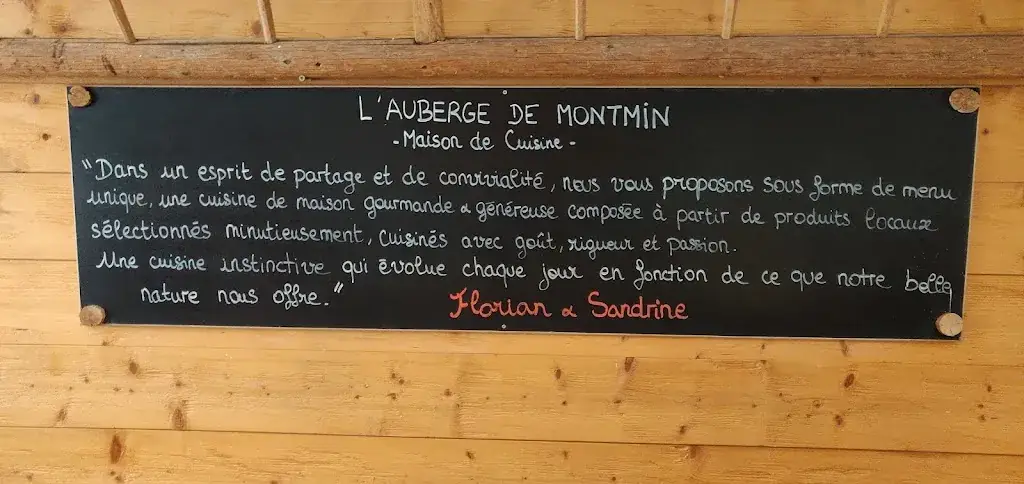 L'AUBERGE DE MONTMIN
- Maison de Cuisine -
"Dans un esprit de partage et de convivialité, nous vous proposons sous forme de menu
unique, une cuisine de maison gourmande & généreuse composée à partir de produits locaux
sélectionnés minutieusement, cuisinés avec goût, rigueur et passion.
Une cuisine instinctive qui évolue chaque jour en fonction de ce que notre belle
nature nous offre."
Florian & Sandrine